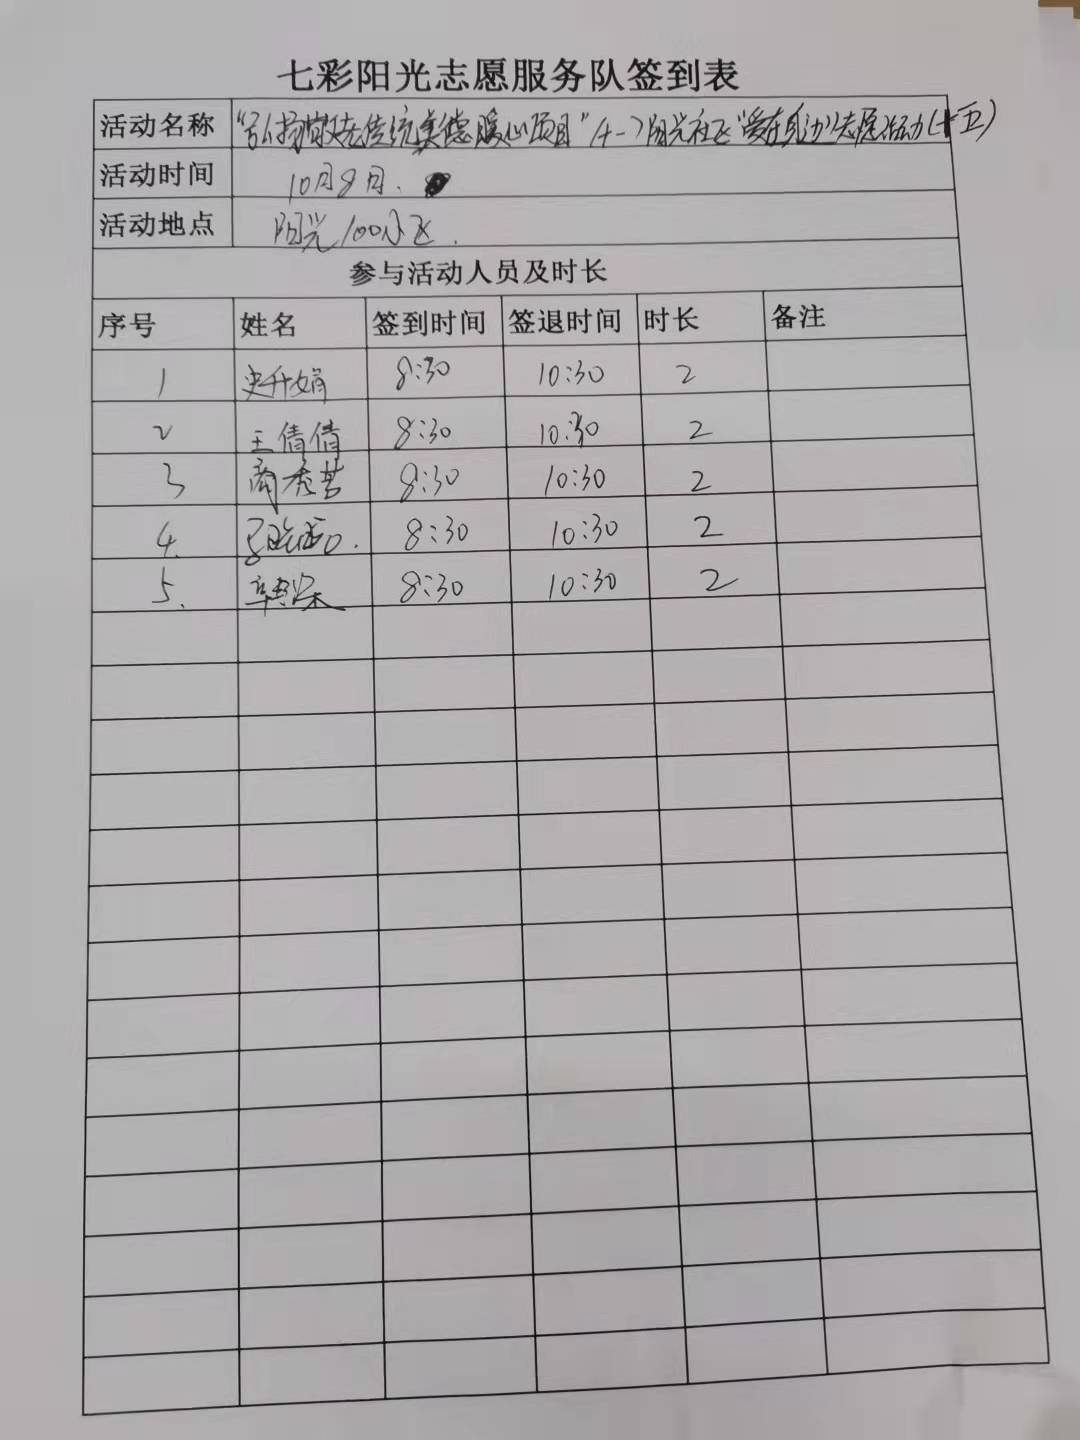 七彩阳光志愿服务队签到表
活动名称 "弘扬敬老传统美德暖心项目"(十一)阳光社区"爱在身边"志愿活动(十五)
活动时间 10月8日.
活动地点 阳光100小区.
参与活动人员及时长
序号 姓名 签到时间 签退时间 时长 备注
1 史升娟 8:30 10:30 2
2 王倩倩 8:30 10:30 2
3 商秀芸 8:30 10:30 2
4. 8:30 10:30 2
5. 8:30 10:30 2